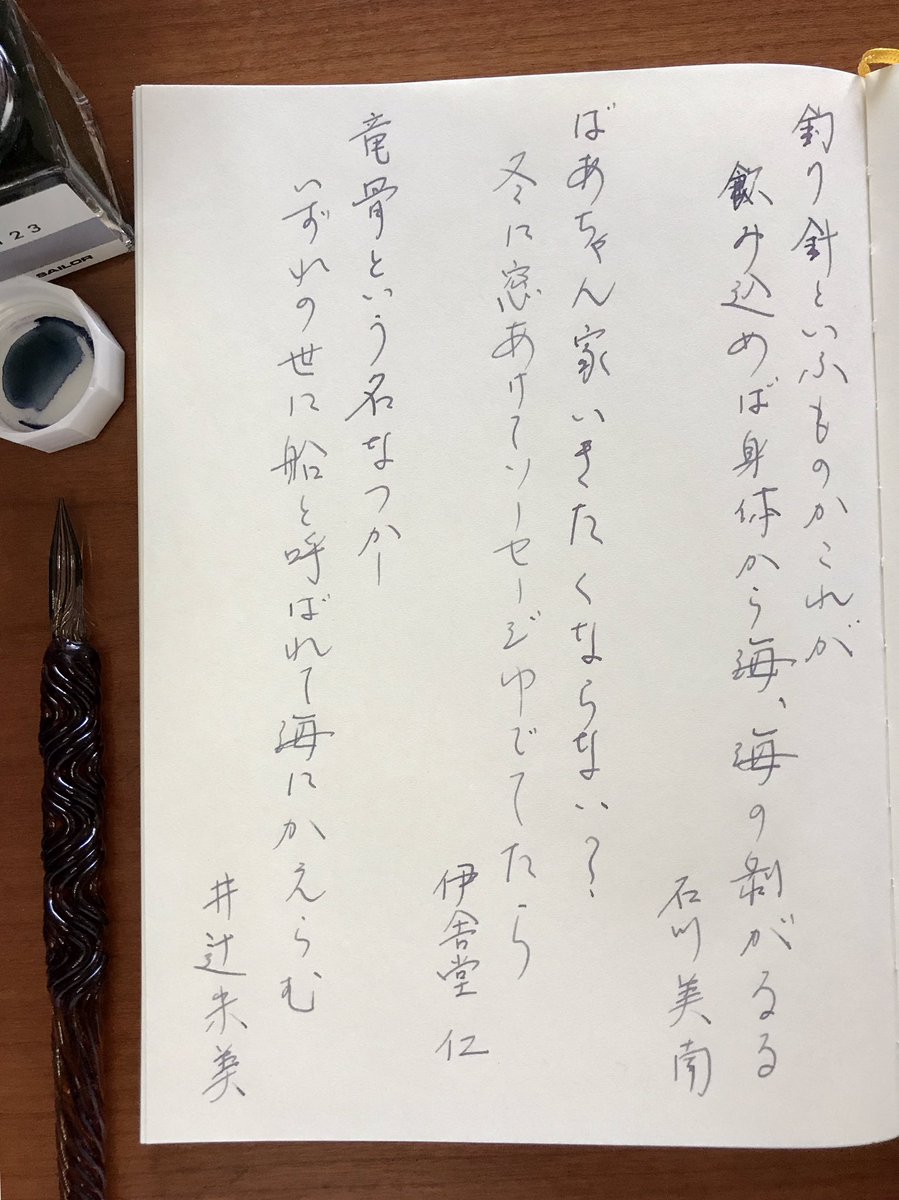 釣り針といふものかこれが
飲み込めば身体から海、海の剥がるる
石川美南
ばあちゃん家いきたくならない?
冬に窓あけてソーセージゆでてたら
伊舎堂 仁
竜骨という名なつかし
いずれの世に船と呼ばれて海にかえらむ
井辻朱美
123
SAILOR